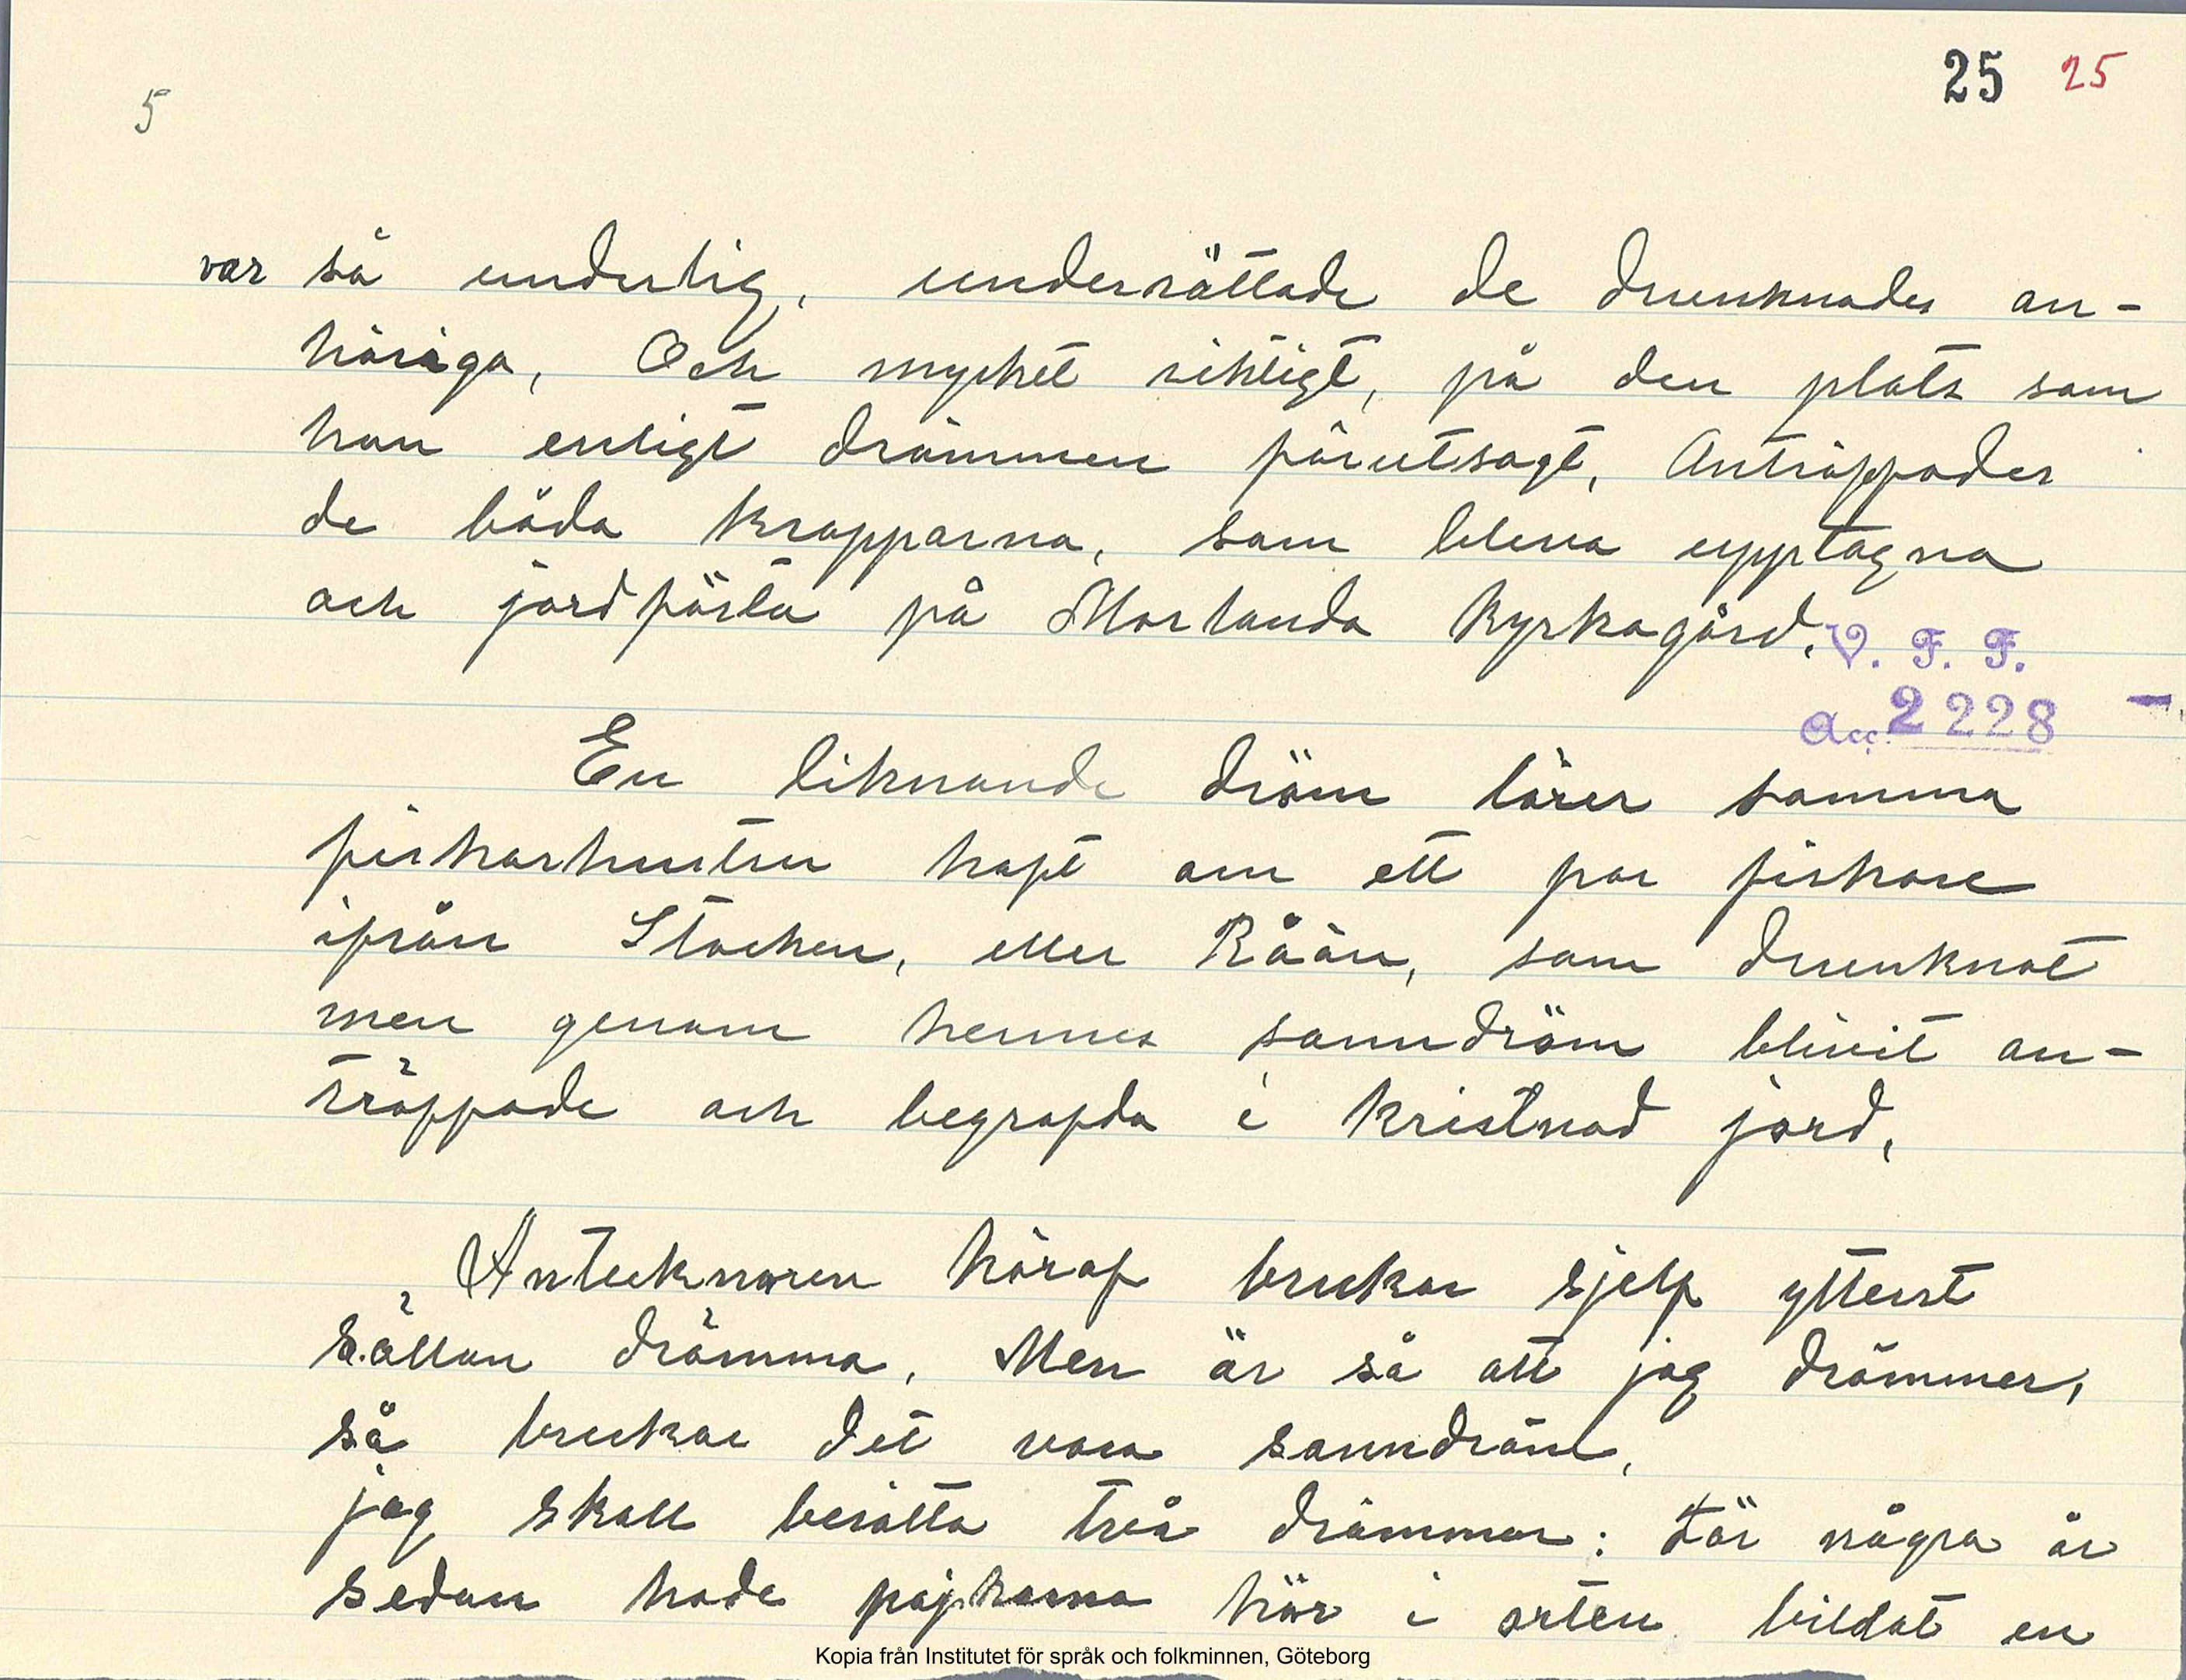 25 25
5
var så underlig, underrättade de drunknades an-
höriga, Och mycket riktigt, på den plats som
hon enligt drömmen förutsagt, Anträffades
de båda kropparna, som bleva upptagna
och jordfästa på Morlanda kyrkogård.
V. F. F.
Acc. 2228
En liknande dröm lärer samma
fiskarhustru haft om ett par fiskare
ifrån Stocken, eller Råön, som drunknat
men genom hennes sanndröm blivit an-
träffade och begrafda i kristnad jord,
Antecknaren häraf brukar sjelf ytterst
sällan drömma, Men är så att jag drömmer,
så brukar det vara sanndröm,
jag skall berätta två drömmar: För några år
sedan hade pojkarna här i orten bildat en
Kopia från Institutet för språk och folkminnen, Göteborg